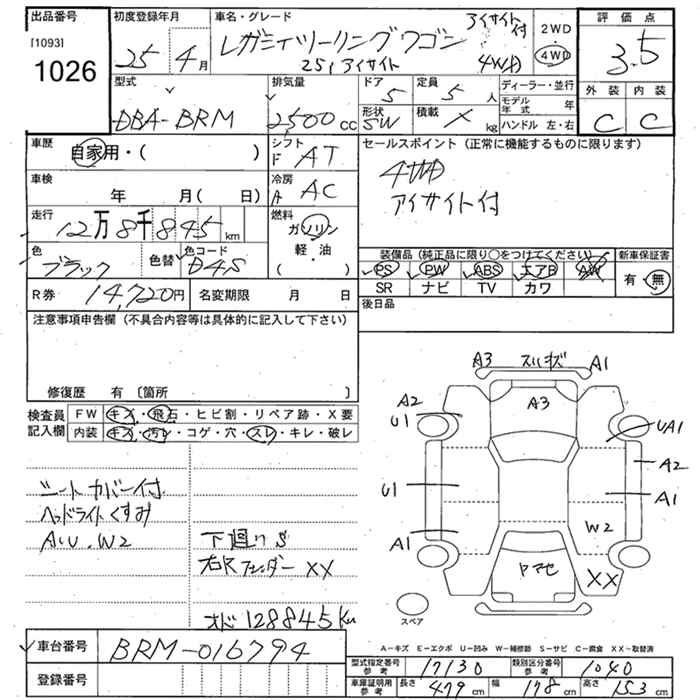 出品番号
[1093]
1026
初度登録年月
25年4月
車名・グレード
アイサイト付
レガシィツーリングワゴン
25i アイサイト 4WD
2WD
・
4WD
評価点
3.5
外装 内装
C C
型式
DBA-BRM
排気量
2500cc
ドア
5
定員
5人
形状
SW
積載
X kg
ディーラー・並行
モデル年式 年
ハンドル 左・右
車歴
自家用・( )
シフト
F AT
セールスポイント (正常に機能するものに限ります)
4WD
アイサイト付
車検
年 月( 日)
冷房
A AC
走行
12万8千845km
燃料
ガソリン
軽・油
( )
色
ブラック
色替
色コード
D4S
装備品 (純正品に限り○をつけてください)
PS PW ABS エアB AW
SR ナビ TV カワ
新車保証書
有・無
R券 14,720円
名変期限 月 日
後日品
注意事項申告欄 (不具合内容等は具体的に記入して下さい)
修復歴 有 〔箇所 〕
検査員記入欄
FW キズ・飛石・ヒビ割・リペア跡・X要
内装 キズ・汚レ・コゲ・穴・スレ・キレ・破レ
シートカバー付
ヘッドライトくすみ
A・U・W2
下廻りS
右Rフェンダー XX
オド 128845Km
A3 スリキズ A1
A2 A3
U1 UA1
A2
U1 A1
W2
A1 ヤマセ XX
スペア
A-キズ E-エクボ U-凹み W-補修跡 S-サビ C-腐食 XX-取替済
車台番号 BRM-016794
登録番号
型式指定番号参考 17130
類別区分番号参考 1040
車庫証明用参考 長さ 479cm 幅 178cm 高さ 153cm